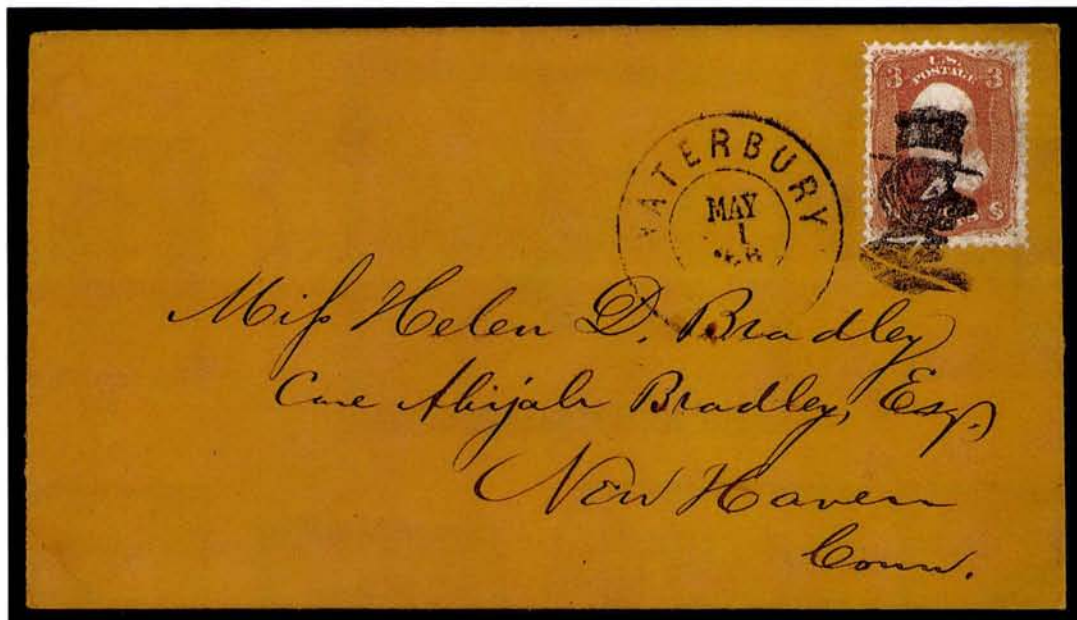 3 U.S. 3
POSTAGE
WATERBURY
MAY
1
Miss Helen D. Bradley
Care Abijah Bradley, Esq.
New Haven
Conn.